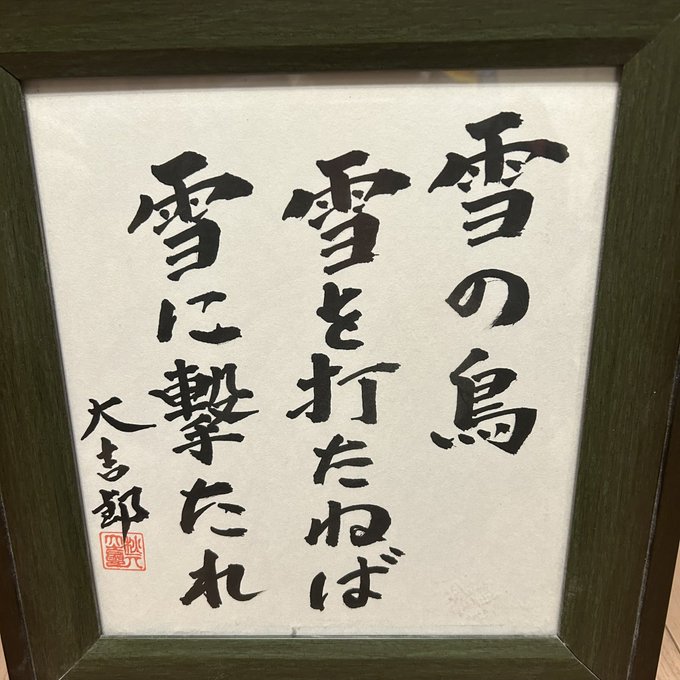 雪の鳥
雪を打たねば
雪に撃たれ
大吉郎